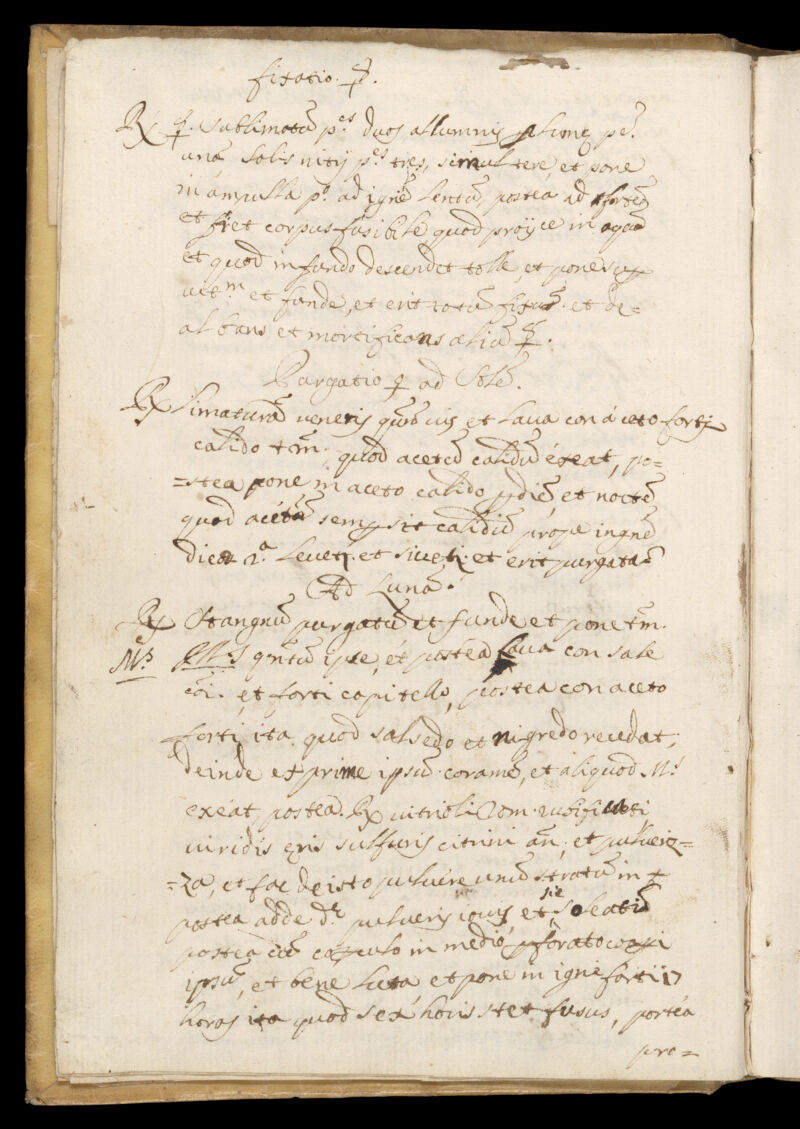 fixatio ☿.
℞ ☿. sublimatũ p.es duos allumnis plume p.e
unã salis nitrij p.es tres, simul tere et pone
in ampulla p.o ad ignẽ lentũ, postea ad fortẽ
et fiet corpus fusibile quod proÿce in aquã
et quod in fundo descendet tolle, et pone sup
et funde, et erit totũ fixũ. et de=
albans et mortificans aliũ ☿.
Purgatio ♀ ad Solẽ.
℞ limaturã veneris et lava con aceto forti
calido quod acetũ calidũ exeat, po=
=stea pone in aceto calido p diẽ et noctẽ
quod acetũ semp sit calidũ prope ignẽ
die 2.a et erit purgata
Ad Lunã.
℞ Stangnũ purgatũ et funde et pone tm.
M.s ipse, et postea lava con sale
cõi. et forti capitello, postea con aceto
forti ita quod salsedo et nigredo recedat,
deinde exprime ipsũ coramẽ, et aliquod M.s
exeat, postea ℞ vitrioli Rom. rubificati
viridis eris sulfuris citrini añ, et pulueri=
=za, et fac de isto puluere unũ stratũ in
postea adde d.i pulueris iovis et sic
postea cũ in medio pforato coopi
ipsũ, et bene luta et pone in igne forti 17
horas ita quod sex horis stet fusus, postea
pro=